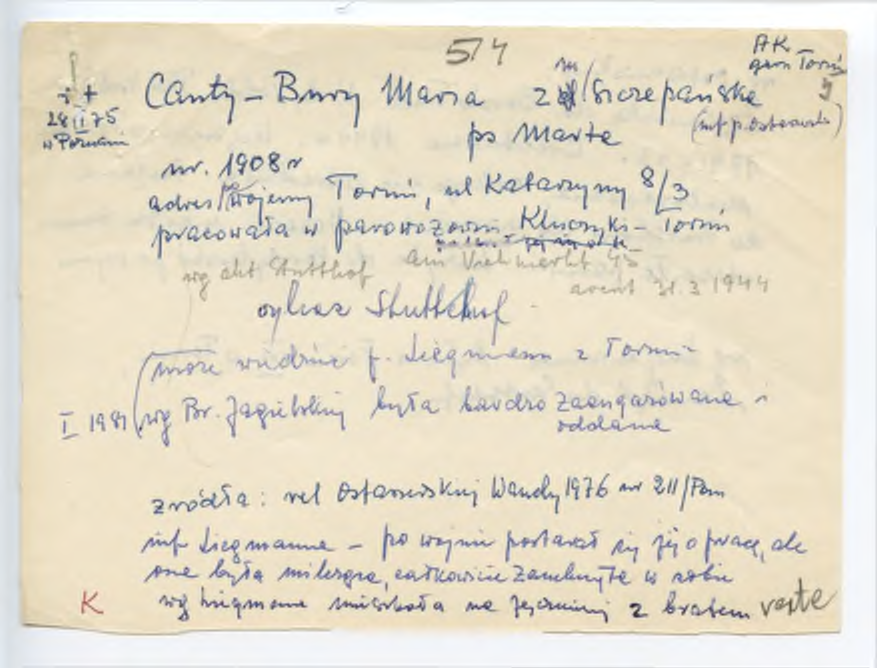 574
AK
garn Toruń
+
28 II 75
w Poznaniu
Canty-Bury Maria z d/Szczepańska
(inf p. Ostrowska)
ps Marta
ur. 1908 r
adres wojenny Toruń, ul Katarzyny 8/3
pracowała w parowozowni Kluczyki-Toruń
wg akt Stutthof am Viehmarkt 45
areszt 31.3 1944
Stutthof
może wiedzieć p. Liegmann z Torunia
I 1981 wg Br. Jagielskiej była bardzo zaangażowana i
oddana
źródła: rel Ostrowskiej Wandy 1976 nr 211/Pom
inf Liegmanna – po wojnie postarał się jej o pracę, ale
ona była milcząca, całkowicie zamknięta w sobie
wg Liegmana mieszkała na Jęczmiennej z bratem verte
K